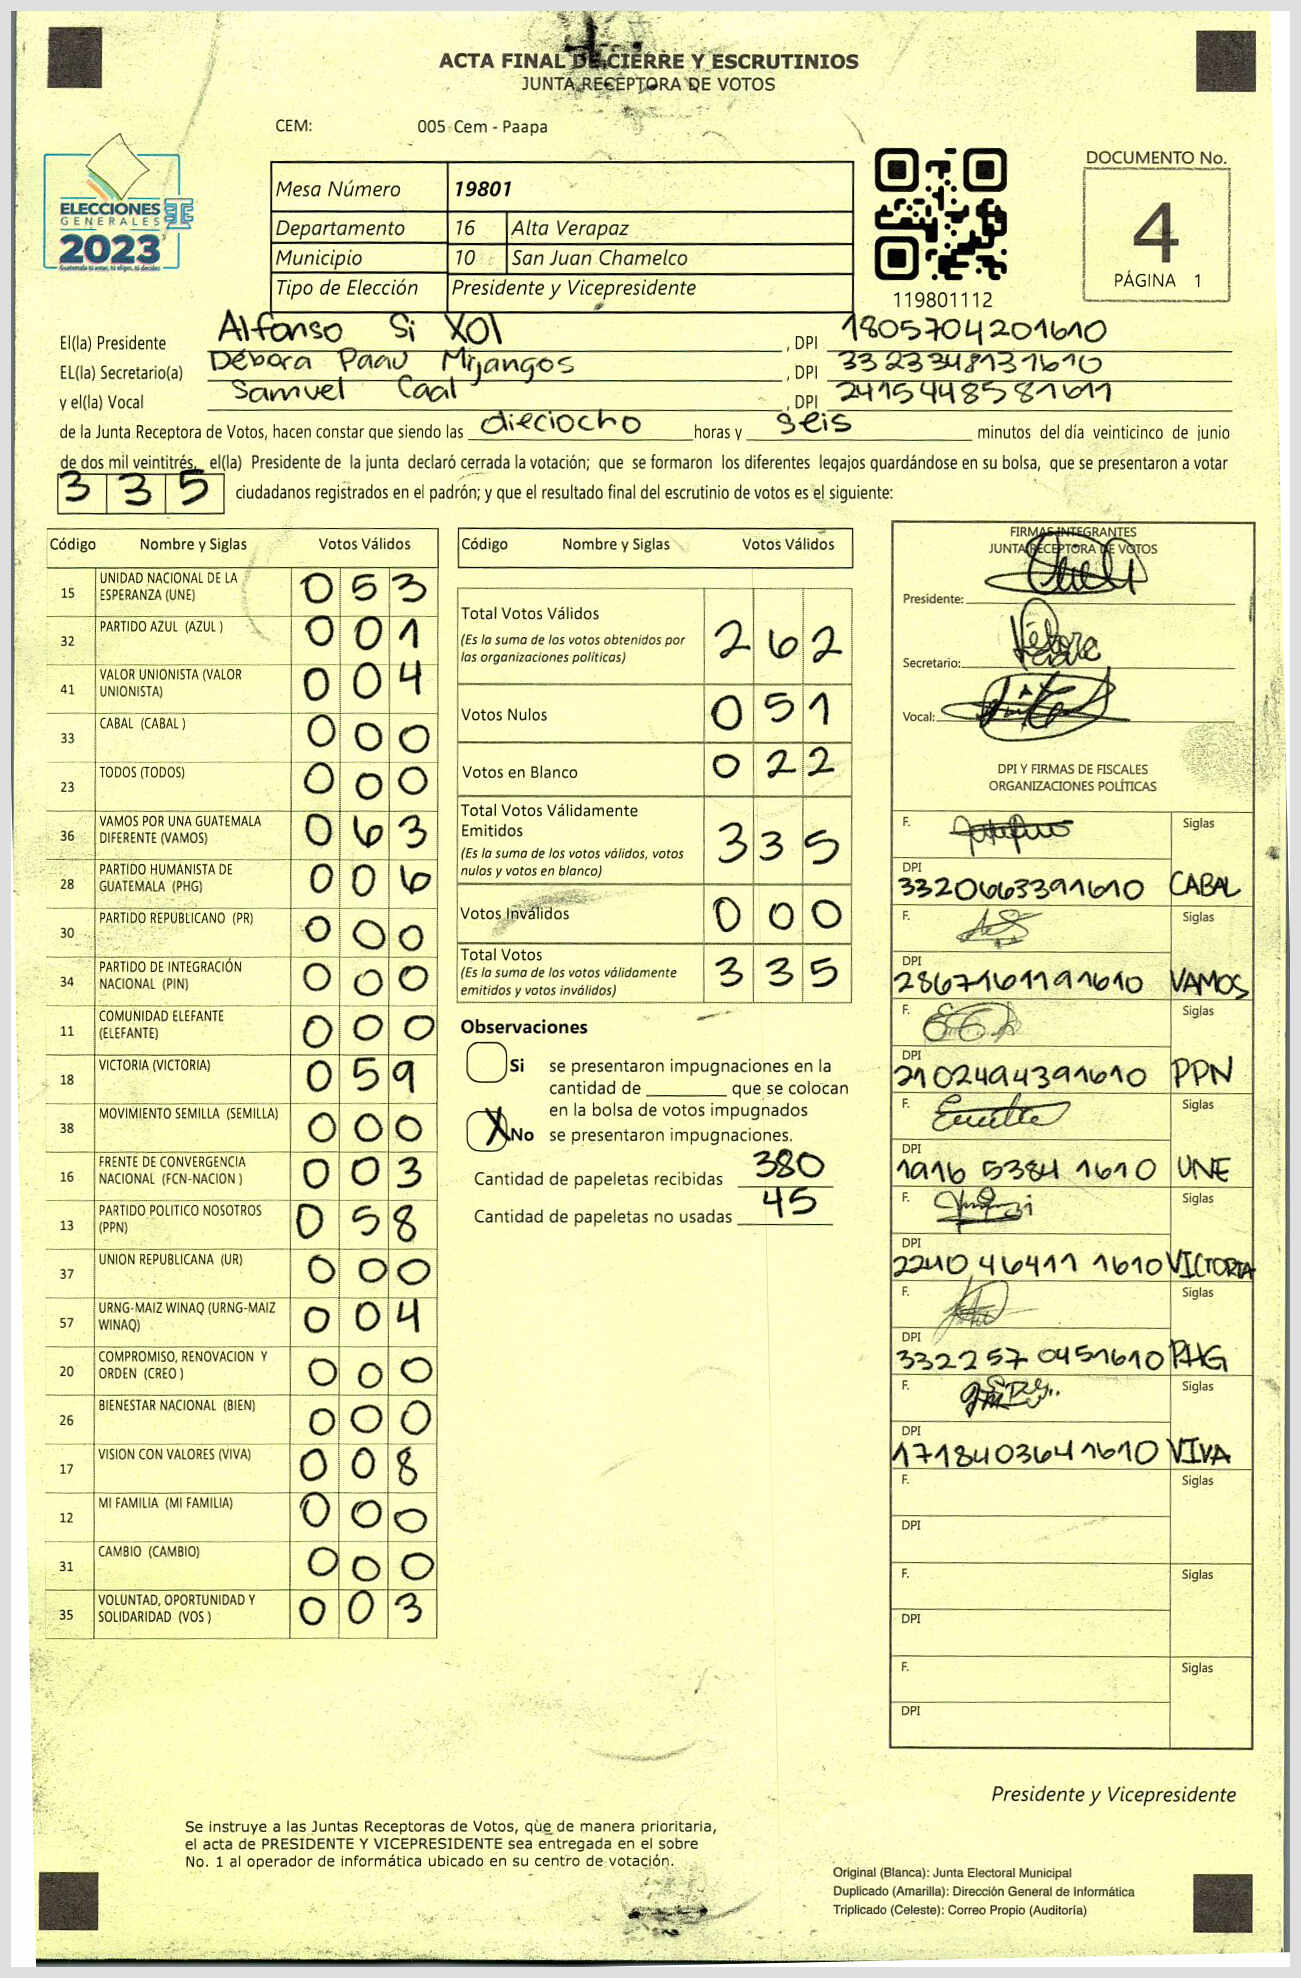 ACTA FINAL DE CIERRE Y ESCRUTINIOS
JUNTA RECEPTORA DE VOTOS
CEM: 005 Cem - Paapa
ELECCIONES
GENERALES
2023
Guatemala tú votas, tú eliges, tú decides
Mesa Número 19801
Departamento 16 Alta Verapaz
Municipio 10 San Juan Chamelco
Tipo de Elección Presidente y Vicepresidente
119801112
DOCUMENTO No.
4
PÁGINA 1
El(la) Presidente Alfonso Si Xol , DPI 1805704201610
EL(la) Secretario(a) Débora Paau Mijangos , DPI 3323348131610
y el(la) Vocal Samuel Caal , DPI 2415448581611
de la Junta Receptora de Votos, hacen constar que siendo las dieciocho horas y seis minutos del día veinticinco de junio
de dos mil veintitrés, el(la) Presidente de la junta declaró cerrada la votación; que se formaron los diferentes legajos guardándose en su bolsa, que se presentaron a votar
335 ciudadanos registrados en el padrón; y que el resultado final del escrutinio de votos es el siguiente:
Código Nombre y Siglas Votos Válidos
15 UNIDAD NACIONAL DE LA ESPERANZA (UNE) 053
32 PARTIDO AZUL (AZUL ) 001
41 VALOR UNIONISTA (VALOR UNIONISTA) 004
33 CABAL (CABAL ) 000
23 TODOS (TODOS) 000
36 VAMOS POR UNA GUATEMALA DIFERENTE (VAMOS) 063
28 PARTIDO HUMANISTA DE GUATEMALA (PHG) 006
30 PARTIDO REPUBLICANO (PR) 000
34 PARTIDO DE INTEGRACIÓN NACIONAL (PIN) 000
11 COMUNIDAD ELEFANTE (ELEFANTE) 000
18 VICTORIA (VICTORIA) 059
38 MOVIMIENTO SEMILLA (SEMILLA) 000
16 FRENTE DE CONVERGENCIA NACIONAL (FCN-NACION ) 003
13 PARTIDO POLITICO NOSOTROS (PPN) 058
37 UNION REPUBLICANA (UR) 000
57 URNG-MAIZ WINAQ (URNG-MAIZ WINAQ) 004
20 COMPROMISO, RENOVACION Y ORDEN (CREO ) 000
26 BIENESTAR NACIONAL (BIEN) 000
17 VISION CON VALORES (VIVA) 008
12 MI FAMILIA (MI FAMILIA) 000
31 CAMBIO (CAMBIO) 000
35 VOLUNTAD, OPORTUNIDAD Y SOLIDARIDAD (VOS ) 003
Código Nombre y Siglas Votos Válidos
Total Votos Válidos 262
(Es la suma de los votos obtenidos por
las organizaciones políticas)
Votos Nulos 051
Votos en Blanco 022
Total Votos Válidamente
Emitidos 335
(Es la suma de los votos válidos, votos
nulos y votos en blanco)
Votos Inválidos 000
Total Votos 335
(Es la suma de los votos válidamente
emitidos y votos inválidos)
Observaciones
Si se presentaron impugnaciones en la
cantidad de ________ que se colocan
en la bolsa de votos impugnados
X No se presentaron impugnaciones.
Cantidad de papeletas recibidas 380
Cantidad de papeletas no usadas 45
FIRMAS INTEGRANTES
JUNTA RECEPTORA DE VOTOS
Presidente:
Secretario:
Vocal:
DPI Y FIRMAS DE FISCALES
ORGANIZACIONES POLÍTICAS
F. Siglas
DPI 3320663391610 CABAL
F. Siglas
DPI 2867161191610 VAMOS
F. Siglas
DPI 2102494391610 PPN
F. Siglas
DPI 1916 5384 1610 UNE
F. Siglas
DPI 2240 46411 1610 VICTORIA
F. Siglas
DPI 332257 0451610 PHG
F. Siglas
DPI 1718403641610 VIVA
F. Siglas
DPI
F. Siglas
DPI
F. Siglas
DPI
Presidente y Vicepresidente
Se instruye a las Juntas Receptoras de Votos, que de manera prioritaria,
el acta de PRESIDENTE Y VICEPRESIDENTE sea entregada en el sobre
No. 1 al operador de informática ubicado en su centro de votación.
Original (Blanca): Junta Electoral Municipal
Duplicado (Amarilla): Dirección General de Informática
Triplicado (Celeste): Correo Propio (Auditoría)